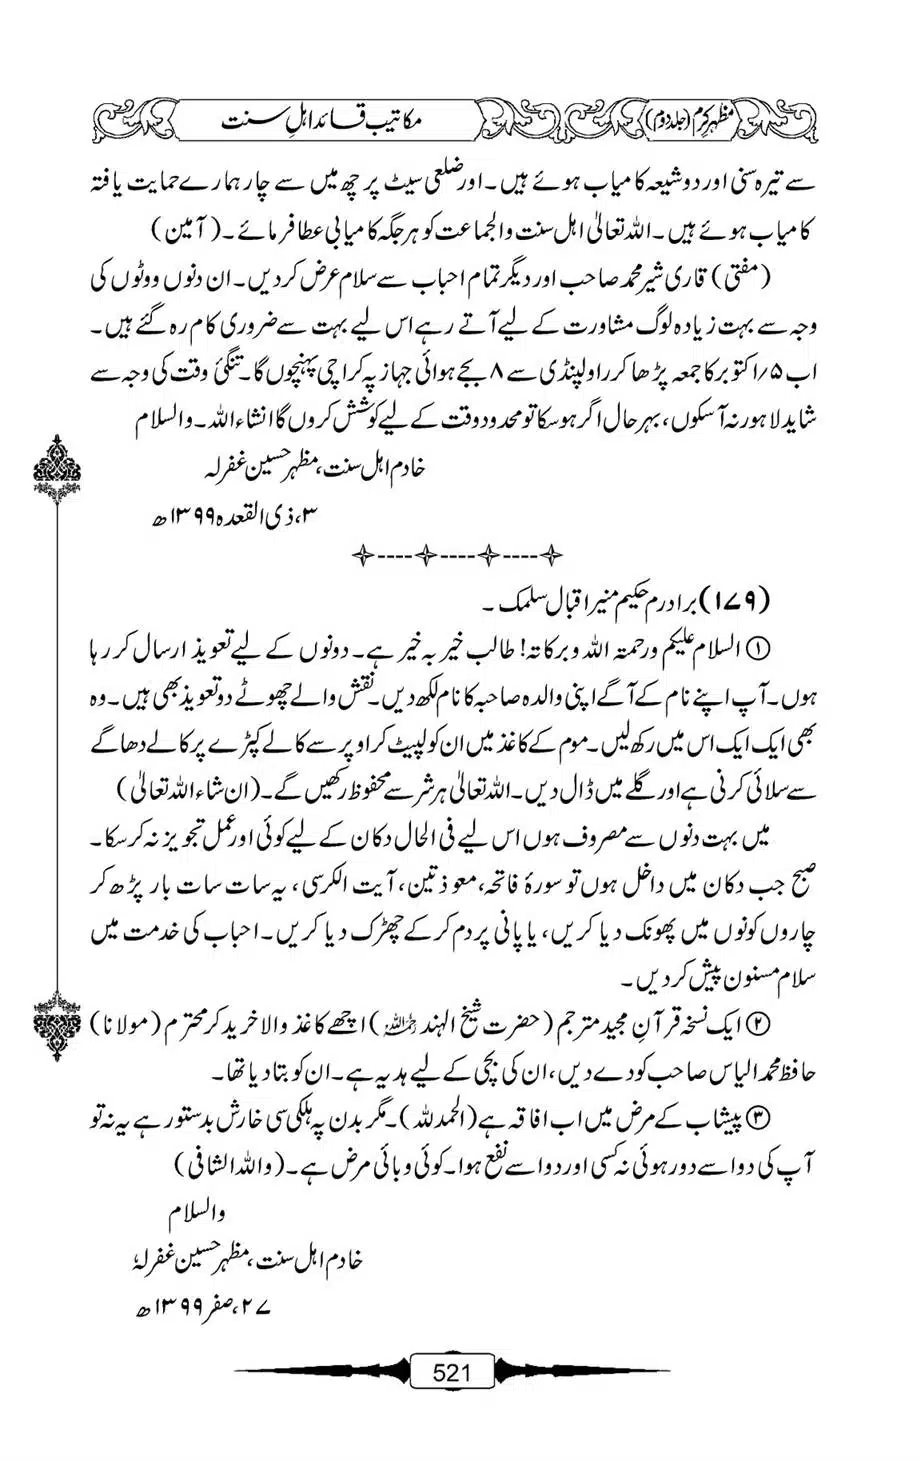 مظہرِ کرم (جلد دوم)
مکاتیب قائد اہلِ سنت
سے تیرہ سنی اور دو شیعہ کامیاب ہوئے ہیں۔ اور ضلعی سیٹ پر چھ میں سے چار ہمارے حمایت یافتہ
کامیاب ہوئے ہیں۔ اللہ تعالیٰ اہل سنت والجماعت کو ہر جگہ کامیابی عطا فرمائے۔ (آمین)
(مفتی) قاری شیر محمد صاحب اور دیگر تمام احباب سے سلام عرض کردیں۔ ان دنوں ووٹوں کی
وجہ سے بہت زیادہ لوگ مشاورت کے لیے آتے رہے اس لیے بہت سے ضروری کام رہ گئے ہیں۔
اب ۵/اکتوبر کا جمعہ پڑھا کر راولپنڈی سے ۸ بجے ہوائی جہاز پہ کراچی پہنچوں گا۔ تنگئ وقت کی وجہ سے
شاید لاہور نہ آسکوں، بہر حال اگر ہوسکا تو محدود وقت کے لیے کوشش کروں گا انشاء اللہ۔ والسلام
خادم اہل سنت، مظہر حسین غفرلہ
۳، ذی القعدہ ۱۳۹۹ھ
(۱۷۹) برادرم حکیم منیر اقبال سلمک۔
① السلام علیکم ورحمتہ اللہ وبرکاتہ! طالب خیر بہ خیر ہے۔ دونوں کے لیے تعویذ ارسال کر رہا
ہوں۔ آپ اپنے نام کے آگے اپنی والدہ صاحبہ کا نام لکھ دیں۔ نقش والے چھوٹے دو تعویذ بھی ہیں۔ وہ
بھی ایک ایک اس میں رکھ لیں۔ موم کے کاغذ میں ان کو لپیٹ کر اوپر سے کالے کپڑے پر کالے دھاگے
سے سلائی کرنی ہے اور گلے میں ڈال دیں۔ اللہ تعالیٰ ہر شر سے محفوظ رکھیں گے۔ (ان شاء اللہ تعالیٰ)
میں بہت دنوں سے مصروف ہوں اس لیے فی الحال دکان کے لیے کوئی اور عمل تجویز نہ کرسکا۔
صبح جب دکان میں داخل ہوں تو سورۂ فاتحہ، معوذتین، آیت الکرسی، یہ سات سات بار پڑھ کر
چاروں کونوں میں پھونک دیا کریں، یا پانی پر دم کرکے چھڑک دیا کریں۔ احباب کی خدمت میں
سلام مسنون پیش کردیں۔
② ایک نسخہ قرآنِ مجید مترجم (حضرت شیخ الہند رحمہ اللہ) اچھے کاغذ والا خرید کر محترم (مولانا)
حافظ محمد الیاس صاحب کو دے دیں، ان کی بچی کے لیے ہدیہ ہے۔ ان کو بتا دیا تھا۔
③ پیشاب کے مرض میں اب افاقہ ہے (الحمدللہ)۔ مگر بدن پہ ہلکی سی خارش بدستور ہے یہ نہ تو
آپ کی دوا سے دور ہوئی نہ کسی اور دوا سے نفع ہوا۔ کوئی وبائی مرض ہے۔ (واللہ الشافی)
والسلام
خادم اہل سنت، مظہر حسین غفرلہٗ
۲۷، صفر ۱۳۹۹ھ
521